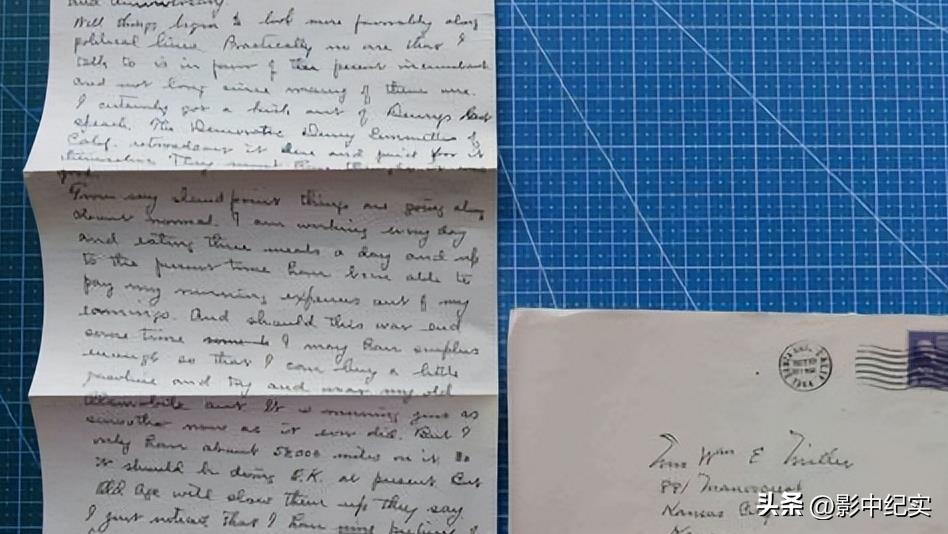 and anniversary.
Well things begin to look more favorably along
political lines. Practically no one that I
talk to is in favor of the present incumbent
and not long since many of them were.
I certainly got a kick out of Deweys last
speech. The Democratic Dewey Committee of
Calif. rebroadcast it here and paid for it
themselves. They must have thought it was
good.
From my stand point things are going along
about normal. I am working every day
and eating three meals a day and up
to the present time have been able to
pay my running expenses out of my
earnings. And should this war end
some time I may have surplus
enough so that I can buy a little
gasoline and try and wear my old
automobile out. It is running just as
smoothe now as it ever did. But I
only have about 58000 miles on it so
it should be doing O.K. at present. But
Old Age will slow them up they say.
I just noticed that I have
1944
Mrs Wm E
881
Kansas City
头条 @影中纪实